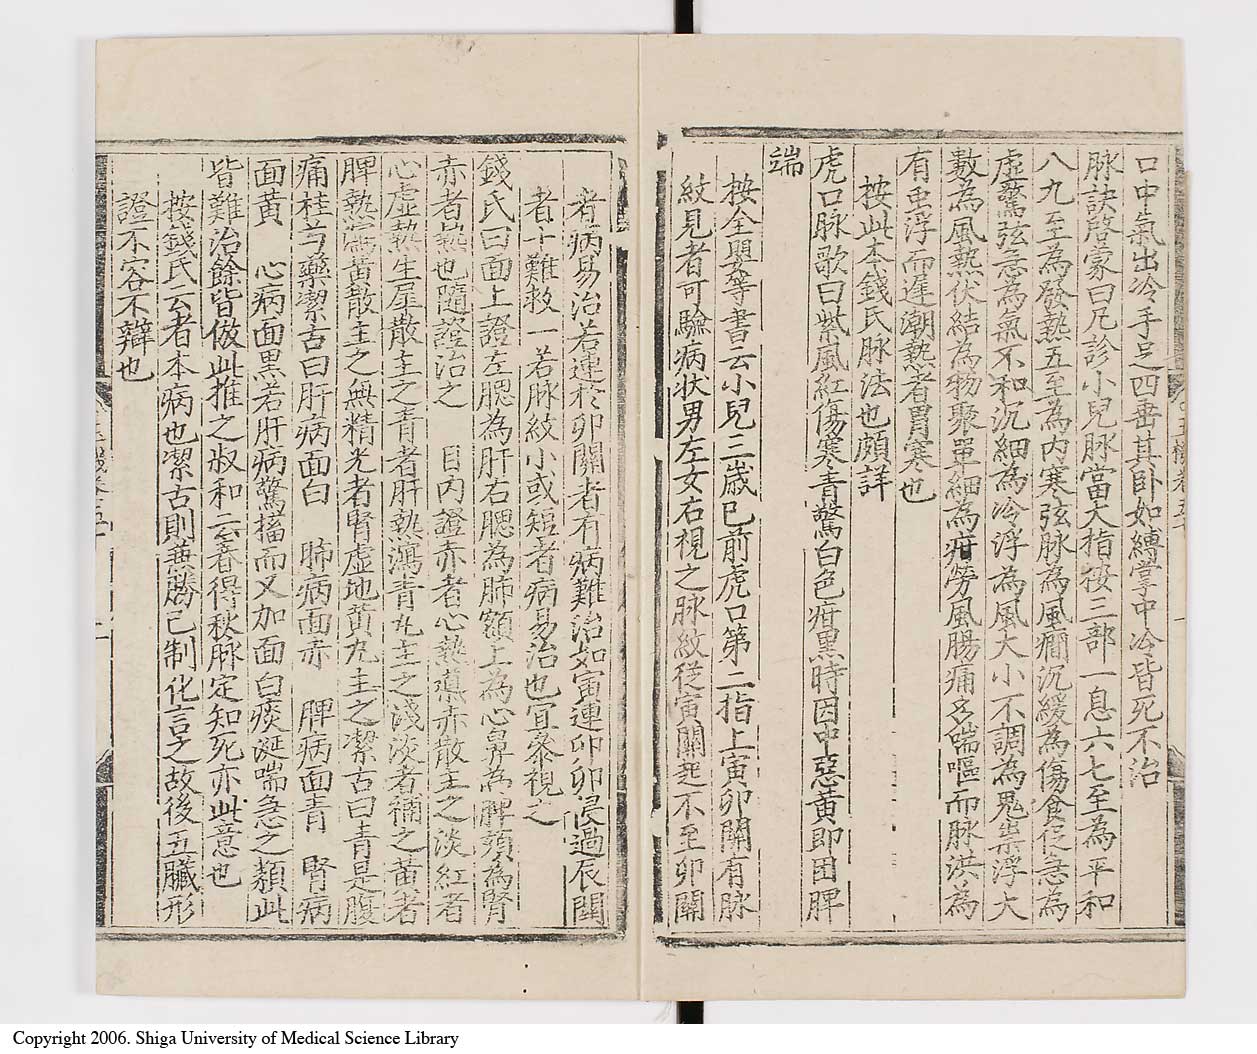 口中氣出冷手足四垂其臥如縛掌中冷皆死不治
脉訣啓蒙曰凡診小兒脉當大指按三部一息六七至為平和
八九至為發熱五至為内寒弦脉為風癇沉緩為傷食促急為
虛驚弦急為氣不和沉細為冷浮為風大小不調為鬼祟浮大
數為風熱伏結為物聚單細為疳勞風腸痛多喘嘔而脉洪為
有虫浮而遲潮熱者胃寒也
按此本錢氏脉法也頗詳
虎口脉歌曰紫風紅傷寒青驚白色疳黑時因中惡黃即困脾
端
按全嬰等書云小兒三歲已前虎口第二指上寅卯關有脉
紋見者可驗病状男左女右視之脉紋從寅關起不至卯關
者病易治若連於卯關者有病難治如寅連卯卯侵過辰關
者十難救一若脉紋小或短者病易治也宜叅視之
錢氏曰面上證左腮為肝右腮為肺額上為心鼻為脾頦為腎
赤者熱也隨證治之 目内證赤者心熱導赤散主之淡紅者
心虛熱生犀散主之青者肝熱瀉青丸主之淺淡者補之黃者
脾熱瀉黃散主之無精光者腎虛地黃丸主之潔古曰青是腹
痛桂芍藥潔古曰肝病面白 肺病面赤 脾病面青 腎病
面黃 心病面黑若肝病驚搐而又加面白痰涎喘急之類此
皆難治餘皆倣此推之叔和云春得秋脉定知死亦此意也
按錢氏云者本病也潔古則兼勝己制化言之故後五臟形
證不容不辯也
Copyright 2006. Shiga University of Medical Science Library